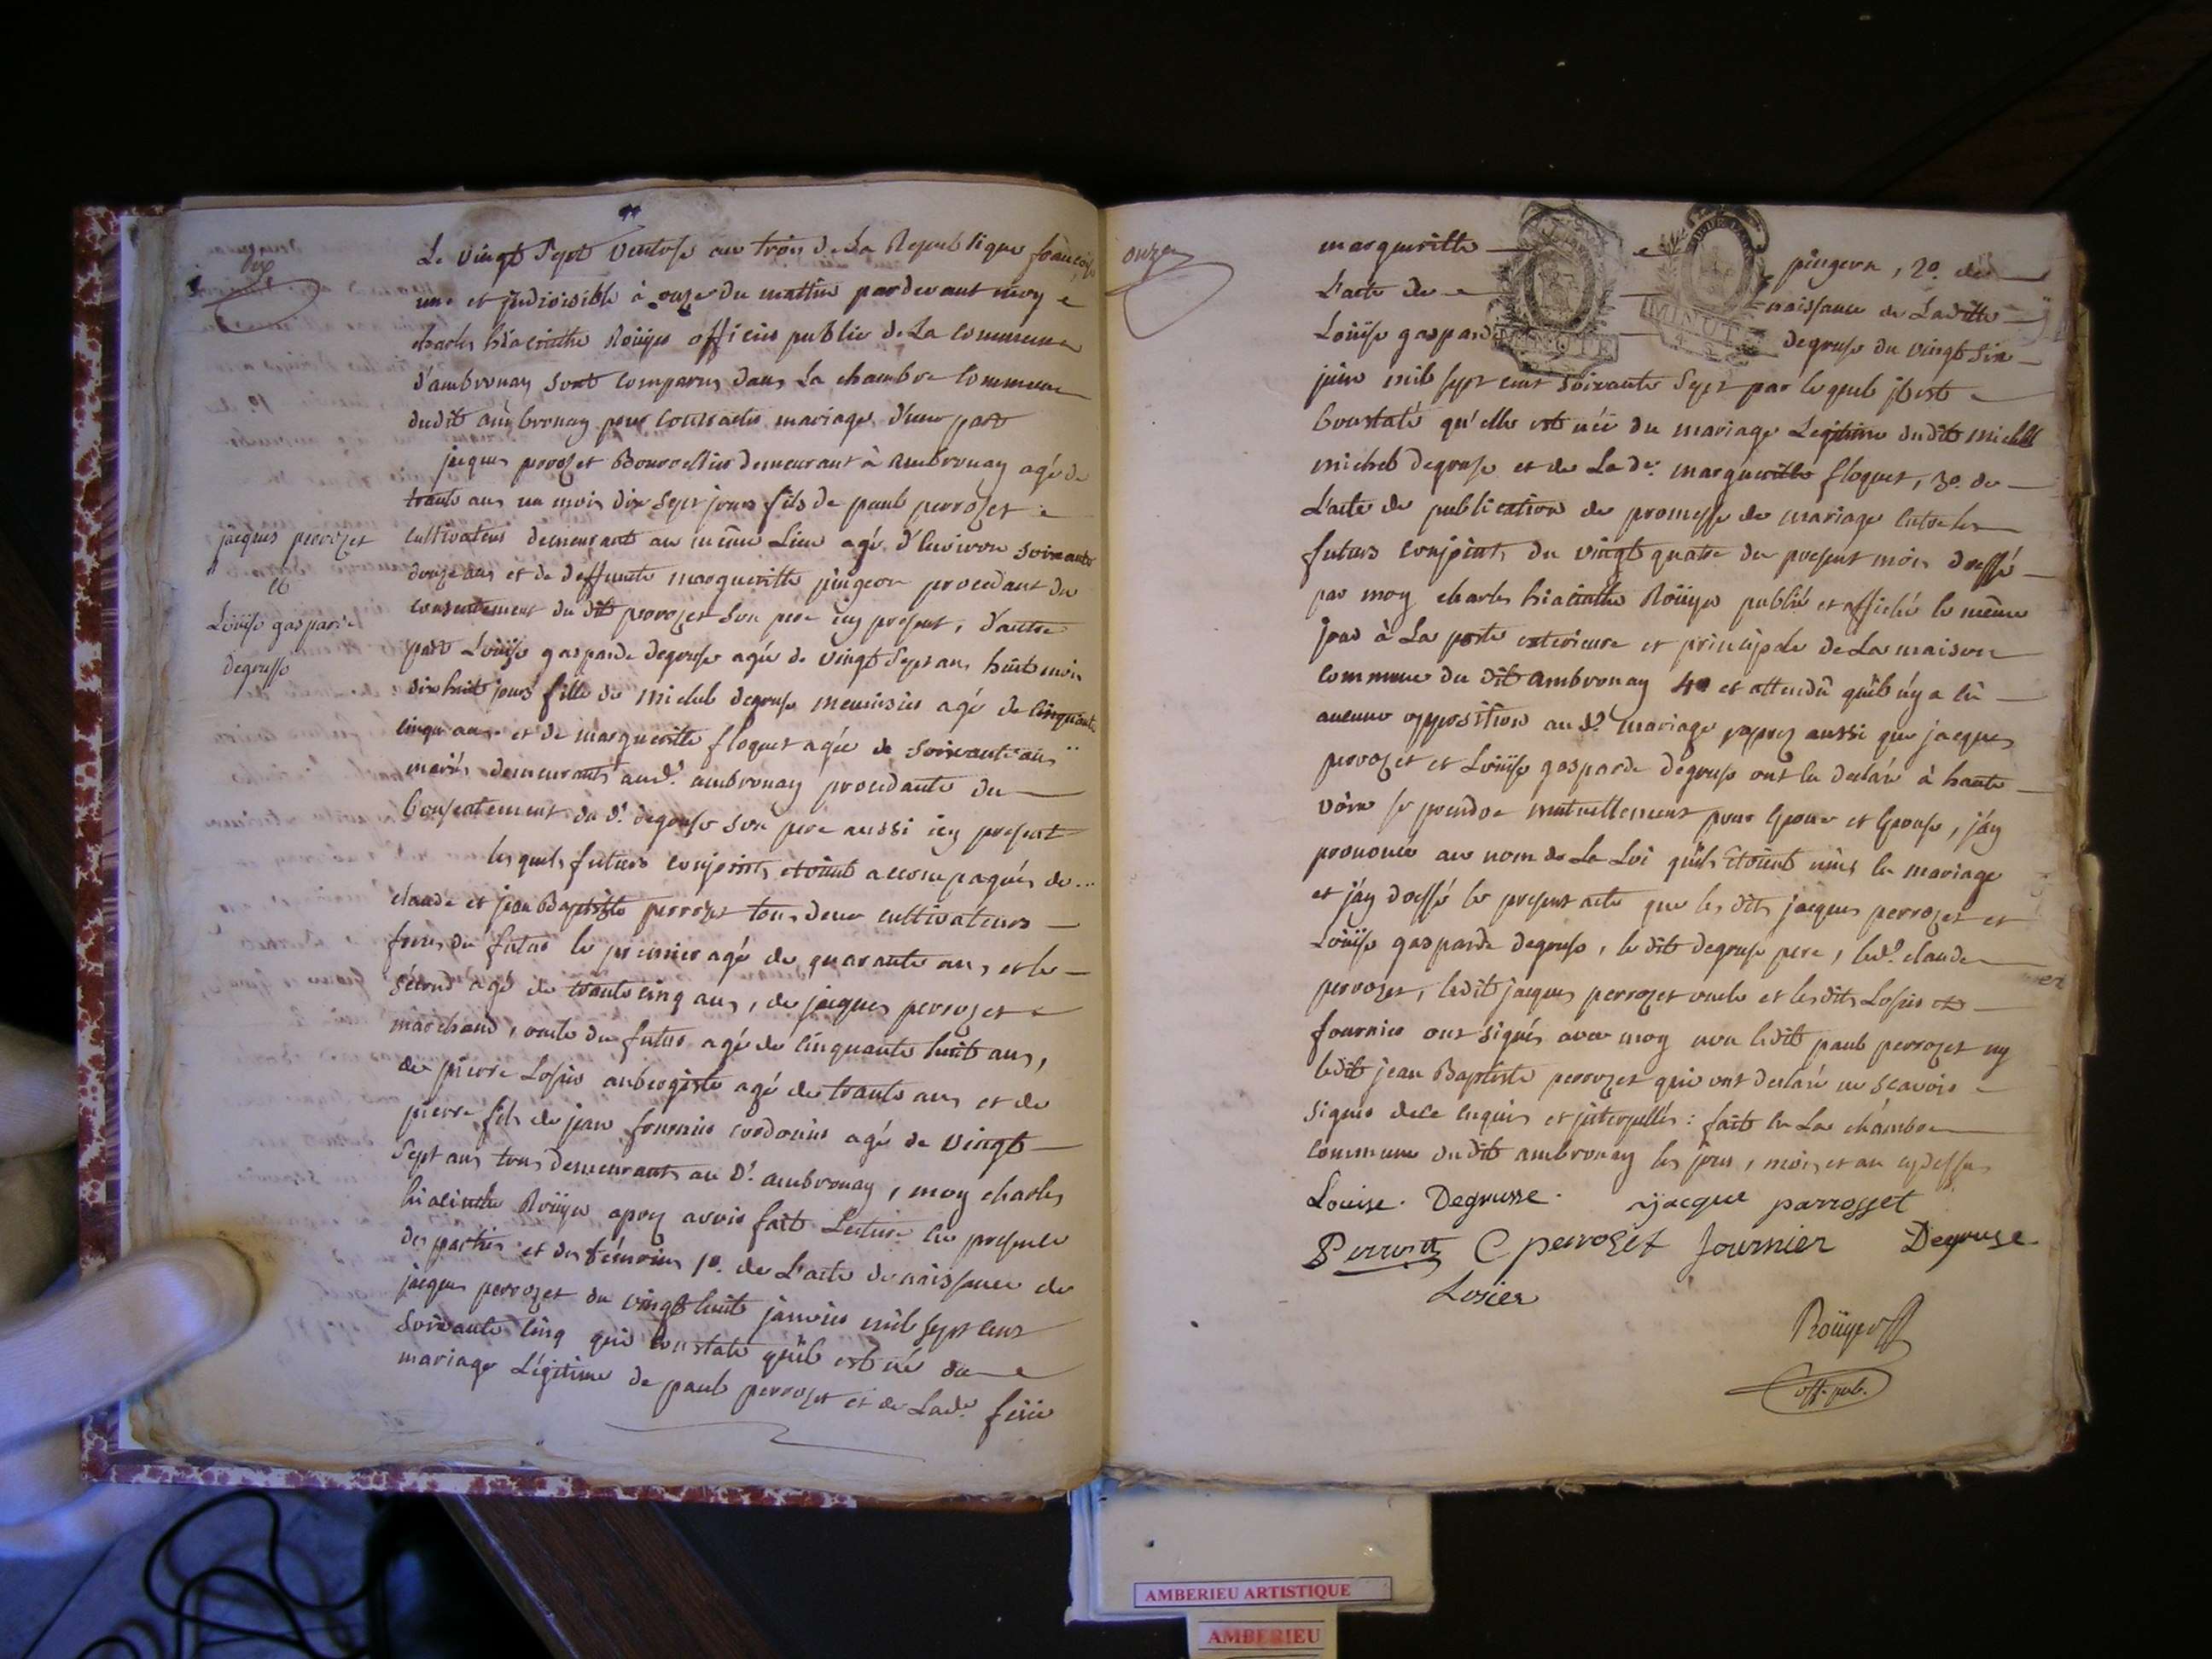 dix
Le vingt Sept Ventose an trois de La Republique française
une et jndivisible à onze du mattin pardevant moy
charles hiacinthe Roüyer officier public de La commune
d'ambronay sont comparus dans La chambre commune
dudit ambronay pour contracter mariage, d'une part
jacques perrozet Bourrellier demeurant à Ambronay agé de
trante ans un mois dix sept jours fils de paul perrozet
cultivateur demeurant au même Lieu agé d'Environ soixante
douze ans et de deffunte margueritte pingeon procedant du
consentement du dit perrozet son pere icy present, d'autre
part Loüise gasparde degruse agée de vingt Sept ans huit mois
dix huit jours fille de michel degruse menuisier agé de cinquante
cinq ans et de margueritte floquet agée de soixante ans
mariés demeurants aud.t ambronay procedante du
Consentement du d.t degruse son pere aussi icy present
lesquels futurs conjoints etoient accompagnés de
claude et jean Baptiste perrozet tous deux cultivateurs
freres du futur le premier agé de quarante ans, et le
sécond agé de trante cinq ans, de jacques perrozet
marchand, oncle du futur agé de cinquante huit ans,
de pierre Losier aubergiste agé de trante ans et de
pierre fils de jean fournier cordonier agé de vingt
Sept ans tous demeurants au d.t ambronay, moy charles
hiacinthe Roüyer aprez avoir fait Lecture en presence
des parties et des témoins 1º. de L'acte de naissance de
jacques perrozet du vingt huit janvier mil sept cent
soixante cinq qui constate qu'il est né du
mariage Légitime de paul perrozet et de Lad.e feüe
jacques perrozet
et
Loüise gasparde
degrusse
onze
margueritte pingeon, 2º. de
L'acte de naissance de Laditte
Loüise gasparde degruse du vingt six
MINUTE
MINUTE
juin mil sept cent soixante Sept par lequel jl est
Constaté qu'elle est née du mariage Legitime dudit michel
michel degruse et de La de. margueritte floquet, 3º. de
L'acte de publication de promesse de mariage entre les
futurs conjoints du vingt quatre du present mois dressé
par moy charles hiacinthe Roüyer publié et affiché le même
jour à La porte exterieure et principale de La maison
commune du dit ambronay 4º et attendû qu'il n'y a eû
aucune opposition au d.t mariage aprez aussi que jacques
perrozet et Loüise gasparde degruse ont eu declaré à haute
voix se prendre mutuellement pour Epoux et Epouse, j'ay
prononcé au nom de La Loi qu'ils étoient unis en mariage
et j'ay dressé le present acte que les dits jacques perrozet et
Loüise gasparde degruse, le dit degruse pere, led.t claude
perrozet, ledit jacques perrozet oncle et lesdits Losier et
fournier ont signés avec moy non ledit paul perrozet ny
ledit jean Baptiste perrozet qui ont declaré ne scavoir
signer dece enquis et jnterpellés : fait en La chambre
commune dudit ambronay les jour, mois et an cydessus
Louise. Degrusse. jacque parrosset
Perrozet C perrozet fournier Degruse
Losier
Roüyer
off. pub.
AMBERIEU ARTISTIQUE
AMBERIEU